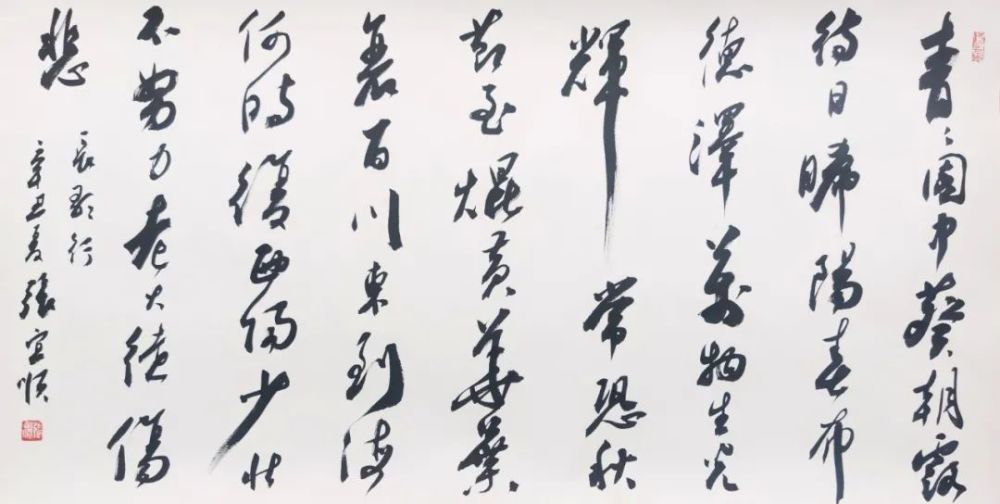 青〻園中葵朝露
待日晞陽春布
德澤萬物生光
輝常恐秋
節至焜黃華葉
衰百川東到海
何時復西歸少壯
不努力老大徒傷
悲
長歌行
辛丑夏張宣順